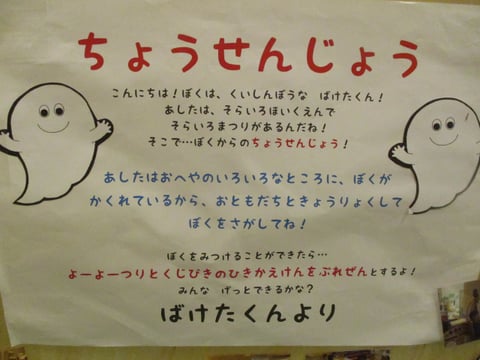 ちょうせんじょう
こんにちは！ぼくは、くいしんぼうな　ばけたくん！
あしたは、そらいろほいくえんで
そらいろまつりがあるんだね！
そこで…ぼくからのちょうせんじょう！
あしたはおへやのいろいろなところに、ぼくが
かくれているから、おともだちときょうりょくして
ぼくをさがしてね！
ぼくをみつけることができたら…
よーよーつりとくじびきのひきかえけんをぷれぜんとするよ！
みんな　げっとできるかな？
ばけたくんより